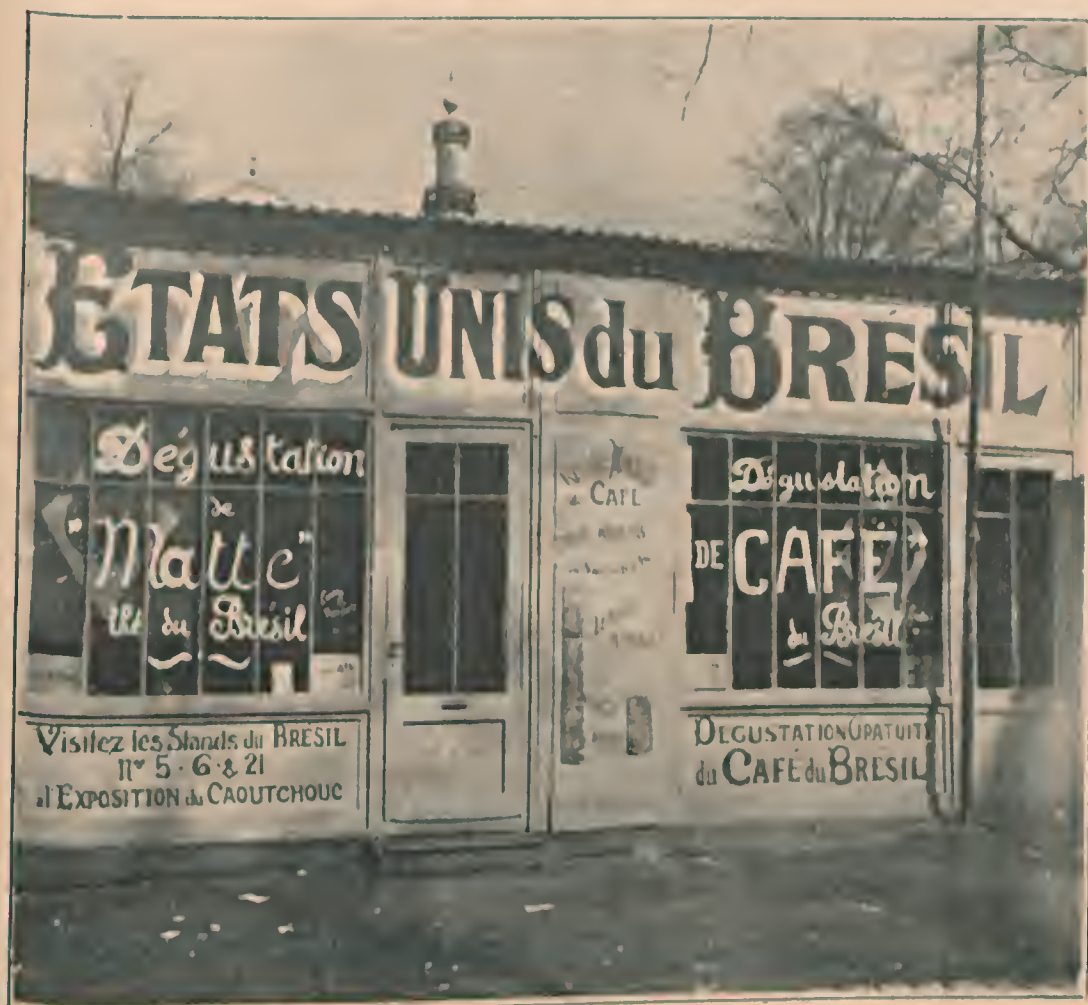 ETATS UNIS du BRÉSIL
Dégustation
de
"Matte"
thé du Brésil
CAFE
Dégustation
DE CAFÉ
du Brésil
Visitez les Stands du BRÉSIL
Nos 5 · 6 · & 21
à l'EXPOSITION du CAOUTCHOUC
DEGUSTATION GRATUITE
du CAFÉ du BRÉSIL